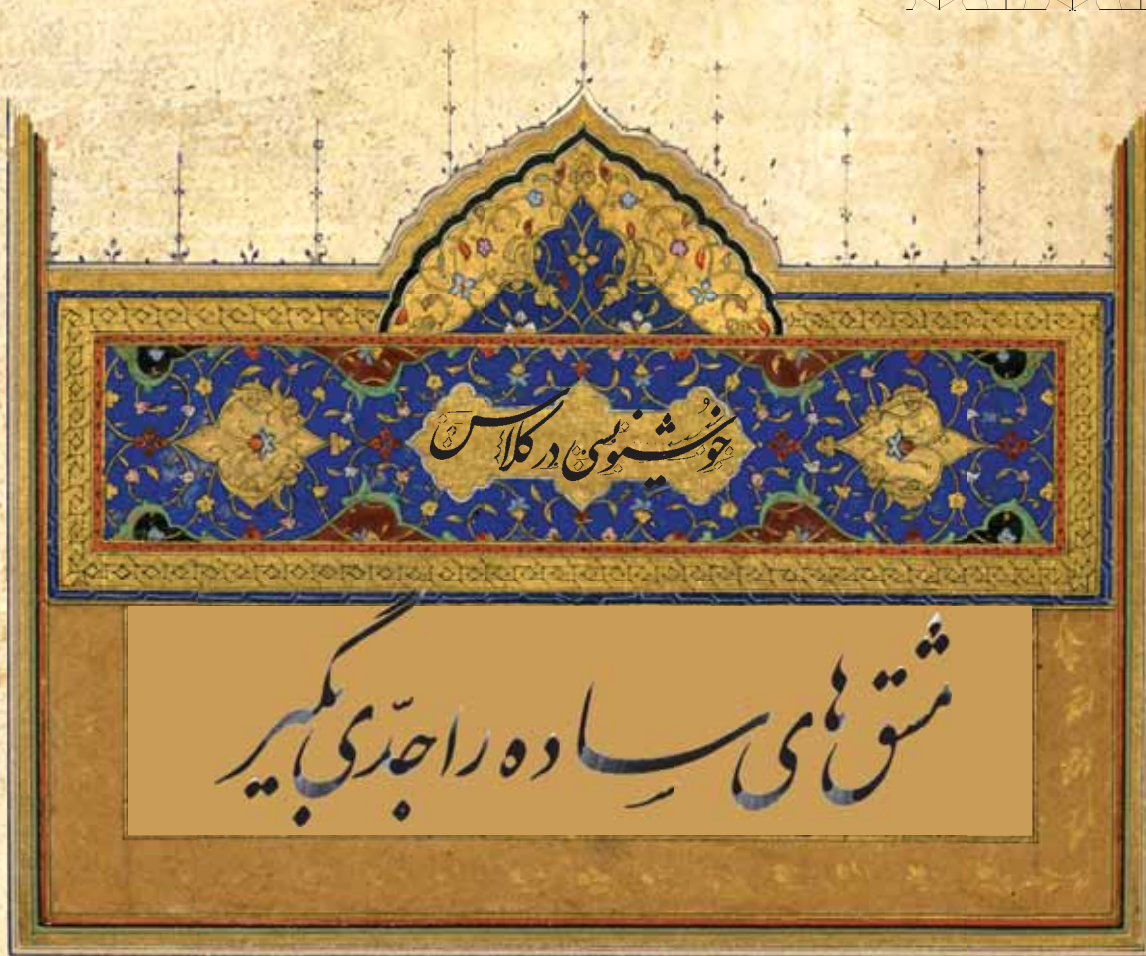 خوشنویسی در کلاس
مشق‌های ساده را جدّی بگیر